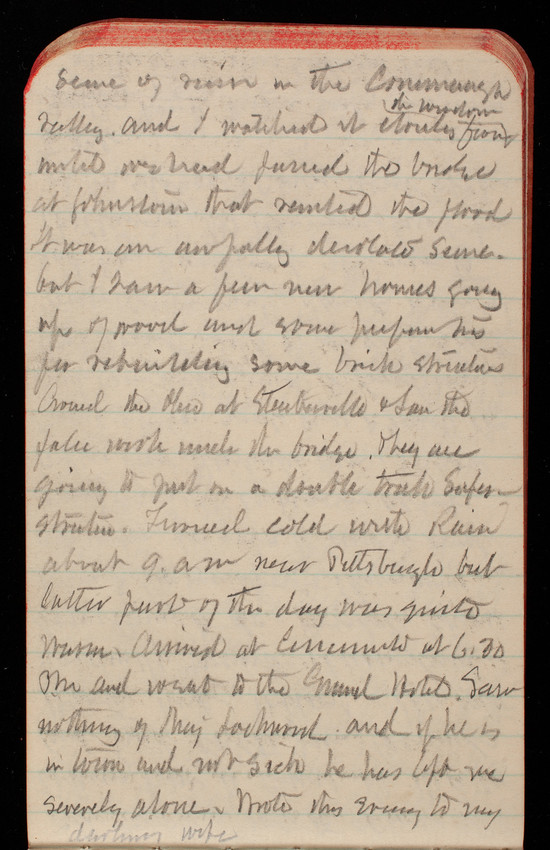 Scene of ruin in the Conemaugh
valley. and I watched it closely from
the window
until we had passed the bridge
at Johnstown that resisted the flood
It was an awfully desolate scene.
but I saw a few new homes going
up of wood and some preparations
for rebuilding some brick structures
Crossed the Ohio at Steubenville & saw the
false work under the bridge. They are
going to put on a double track super-
structure. Turned cold with Rain
about 9. a m near Pittsburgh but
latter part of the day was quite
warm. Arrived at Cincinnati at 6.30
PM and went to the Grand Hotel. Saw
nothing of Maj Lockwood. and if he is
in town and not sick he has left me
severely alone. Wrote this evening to my
darling wife